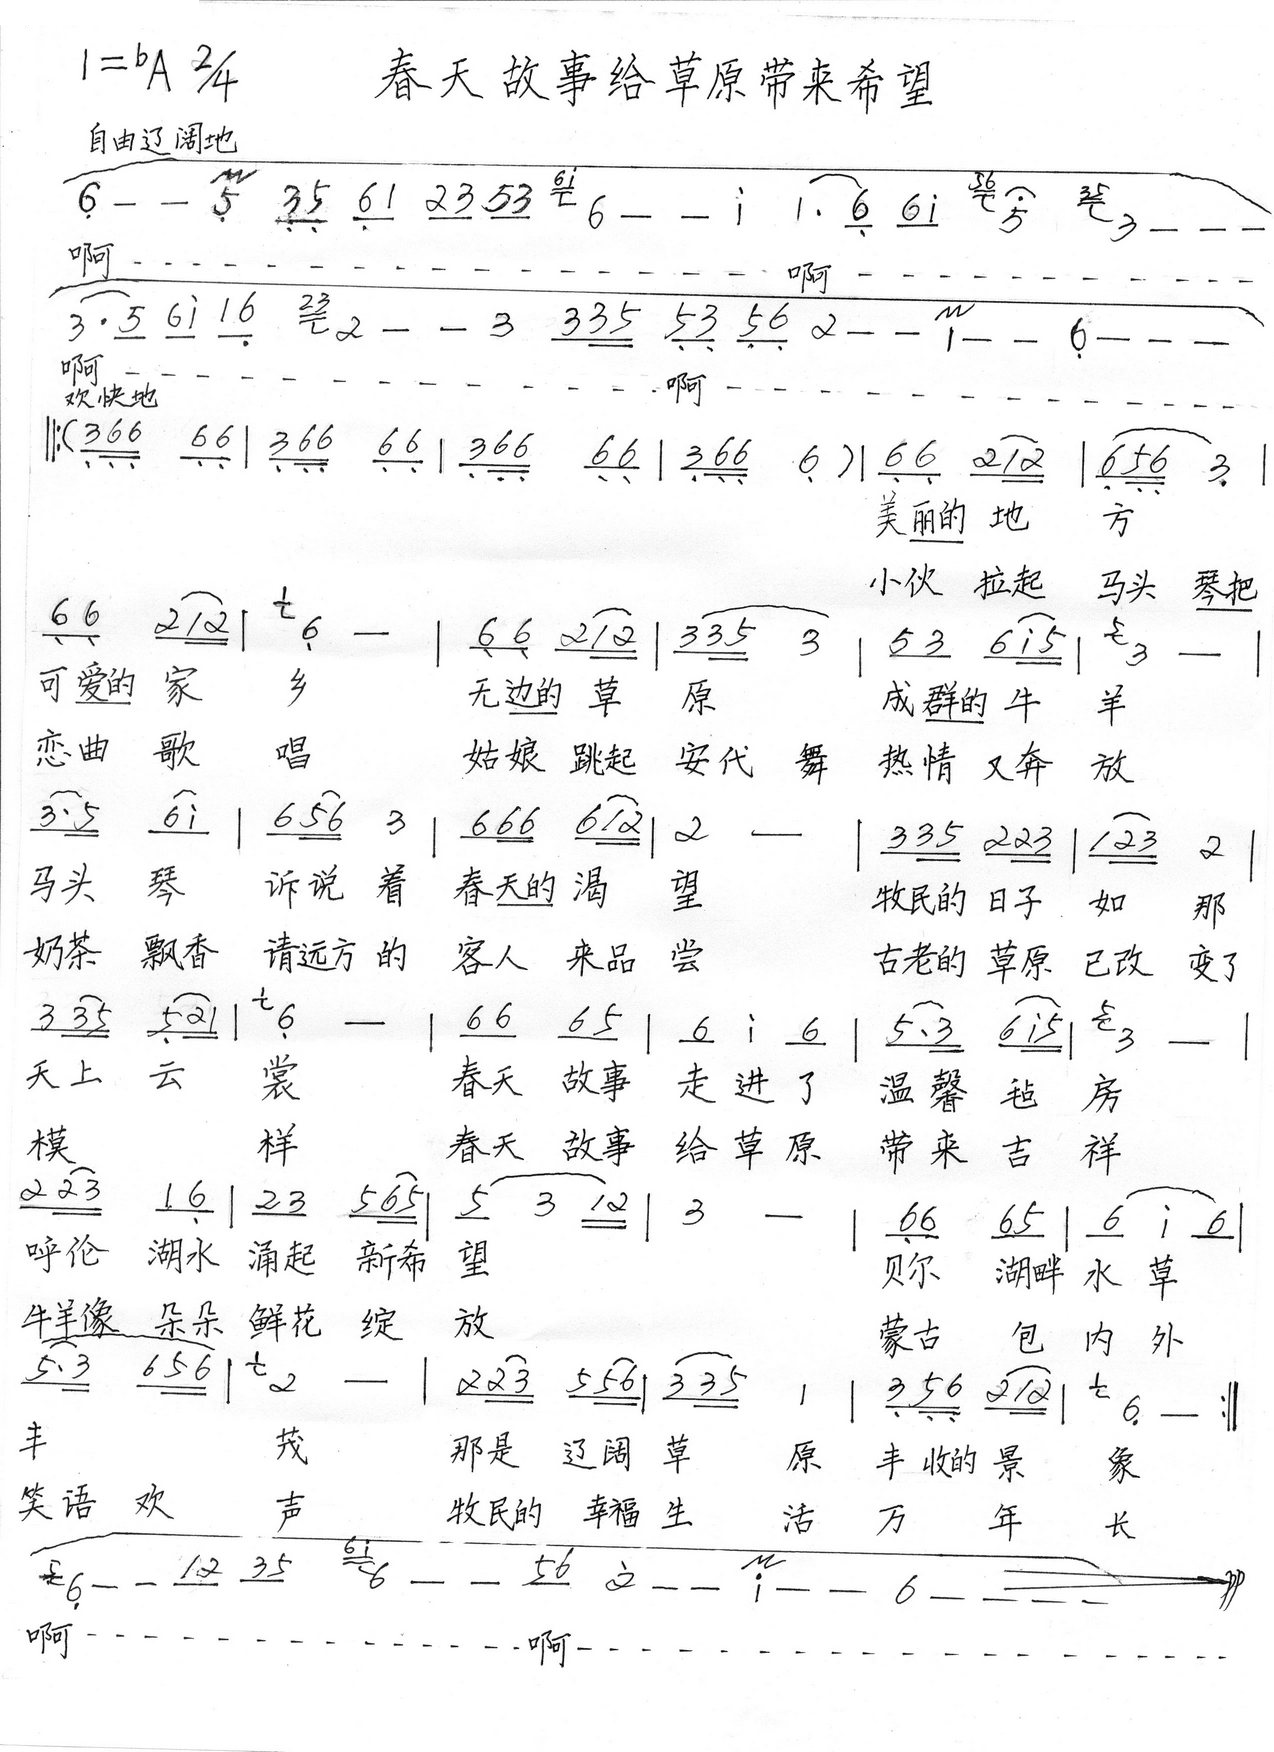 1=bA 2/4 春天故事给草原带来希望
自由辽阔地
6 - - 5 35 61 23 53 6i 6 - - i 1. 6 6i 56 5 35 3 - - -
啊 啊
3. 5 6i 16 23 2 - - 3 335 53 56 2 - - 1 - - 6 - - -
啊 啊
欢快地
‖:(366 66 | 366 66 | 366 66 | 366 6 )| 66 212 | 656 3 |
美丽的 地 方
小伙 拉起 马头 琴把
66 212 | 1 6 - | 66 212 | 335 3 | 53 6i5 | 5 3 - |
可爱的 家 乡 无边的 草 原 成群的 牛 羊
恋曲 歌 唱 姑娘 跳起 安代 舞 热情 又奔 放
3.5 6i | 656 3 | 666 612 | 2 - | 335 223 | 123 2 |
马头 琴 诉说 着 春天的 渴 望 牧民的 日子 如 那
奶茶 飘香 请远方 的 客人 来品 尝 古老的 草原 已改 变了
335 521 | 6 - | 66 65 | 6 i 6 | 5.3 6i5 | 5 3 - |
天上 云 裳 春天 故事 走进了 温馨 毡 房
模 样 春天 故事 给草原 带来 吉 祥
223 16 | 23 565 | 5 3 12 | 3 - | 66 65 | 6 i 6 |
呼伦 湖水 涌起 新希 望 贝尔 湖畔 水 草
牛羊像 朵朵 鲜花 绽 放 蒙古 包 内 外
5.3 656 | 2 - | 223 556 | 335 1 | 356 212 | 6 - :‖
丰 茂 那是 辽阔 草 原 丰 收的 景 象
笑语 欢 声 牧民的 幸福 生 活 万 年 长
5 6 - - 12 35 6i 6 - - 56 2 - - i - - - 6 - - - - - pp
啊 啊